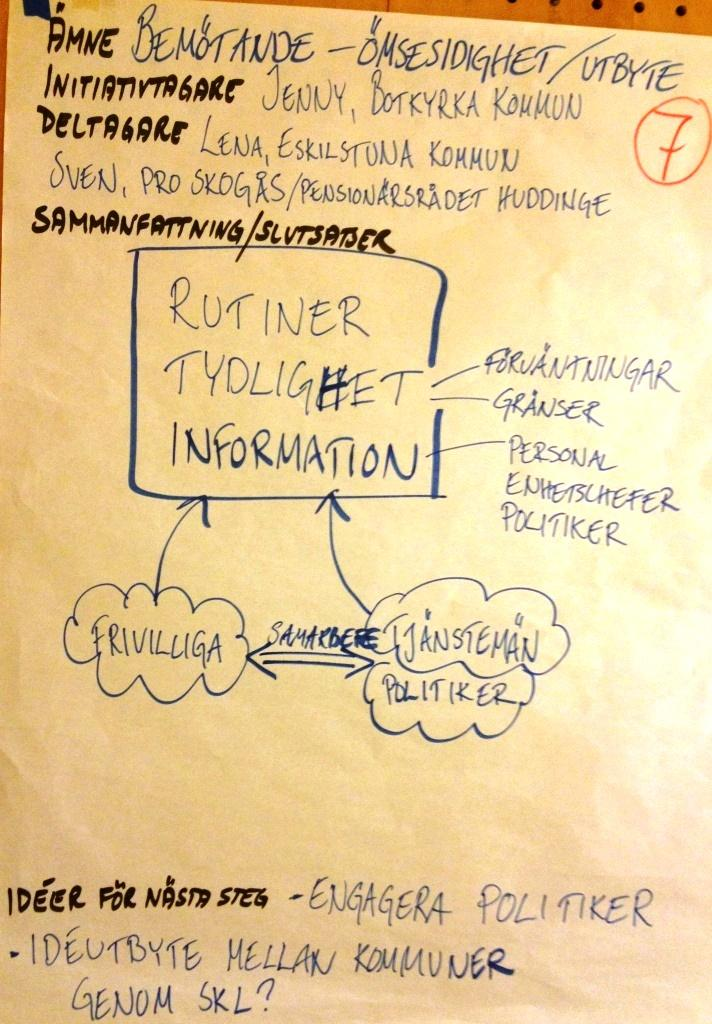 ÄMNE BEMÖTANDE – ÖMSESIDIGHET/UTBYTE
INITIATIVTAGARE JENNY, BOTKYRKA KOMMUN
7
DELTAGARE LENA, ESKILSTUNA KOMMUN
SVEN, PRO SKOGÅS/PENSIONÄRSRÅDET HUDDINGE
SAMMANFATTNING/SLUTSATSER
RUTINER
TYDLIGHET
FÖRVÄNTNINGAR
GRÄNSER
INFORMATION
PERSONAL
ENHETSCHEFER
POLITIKER
FRIVILLIGA
SAMARBETE
TJÄNSTEMÄN
POLITIKER
IDÉER FÖR NÄSTA STEG - ENGAGERA POLITIKER
- IDÉUTBYTE MELLAN KOMMUNER
GENOM SKL?